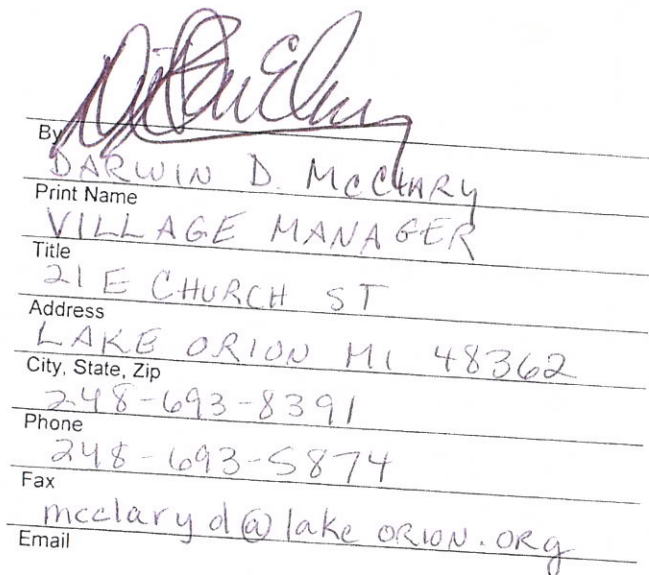 By
DARWIN D. McCLARY
Print Name
VILLAGE MANAGER
Title
21 E CHURCH ST
Address
LAKE ORION MI 48362
City, State, Zip
248-693-8391
Phone
248-693-5874
Fax
mcclaryd@lakeorion.org
Email